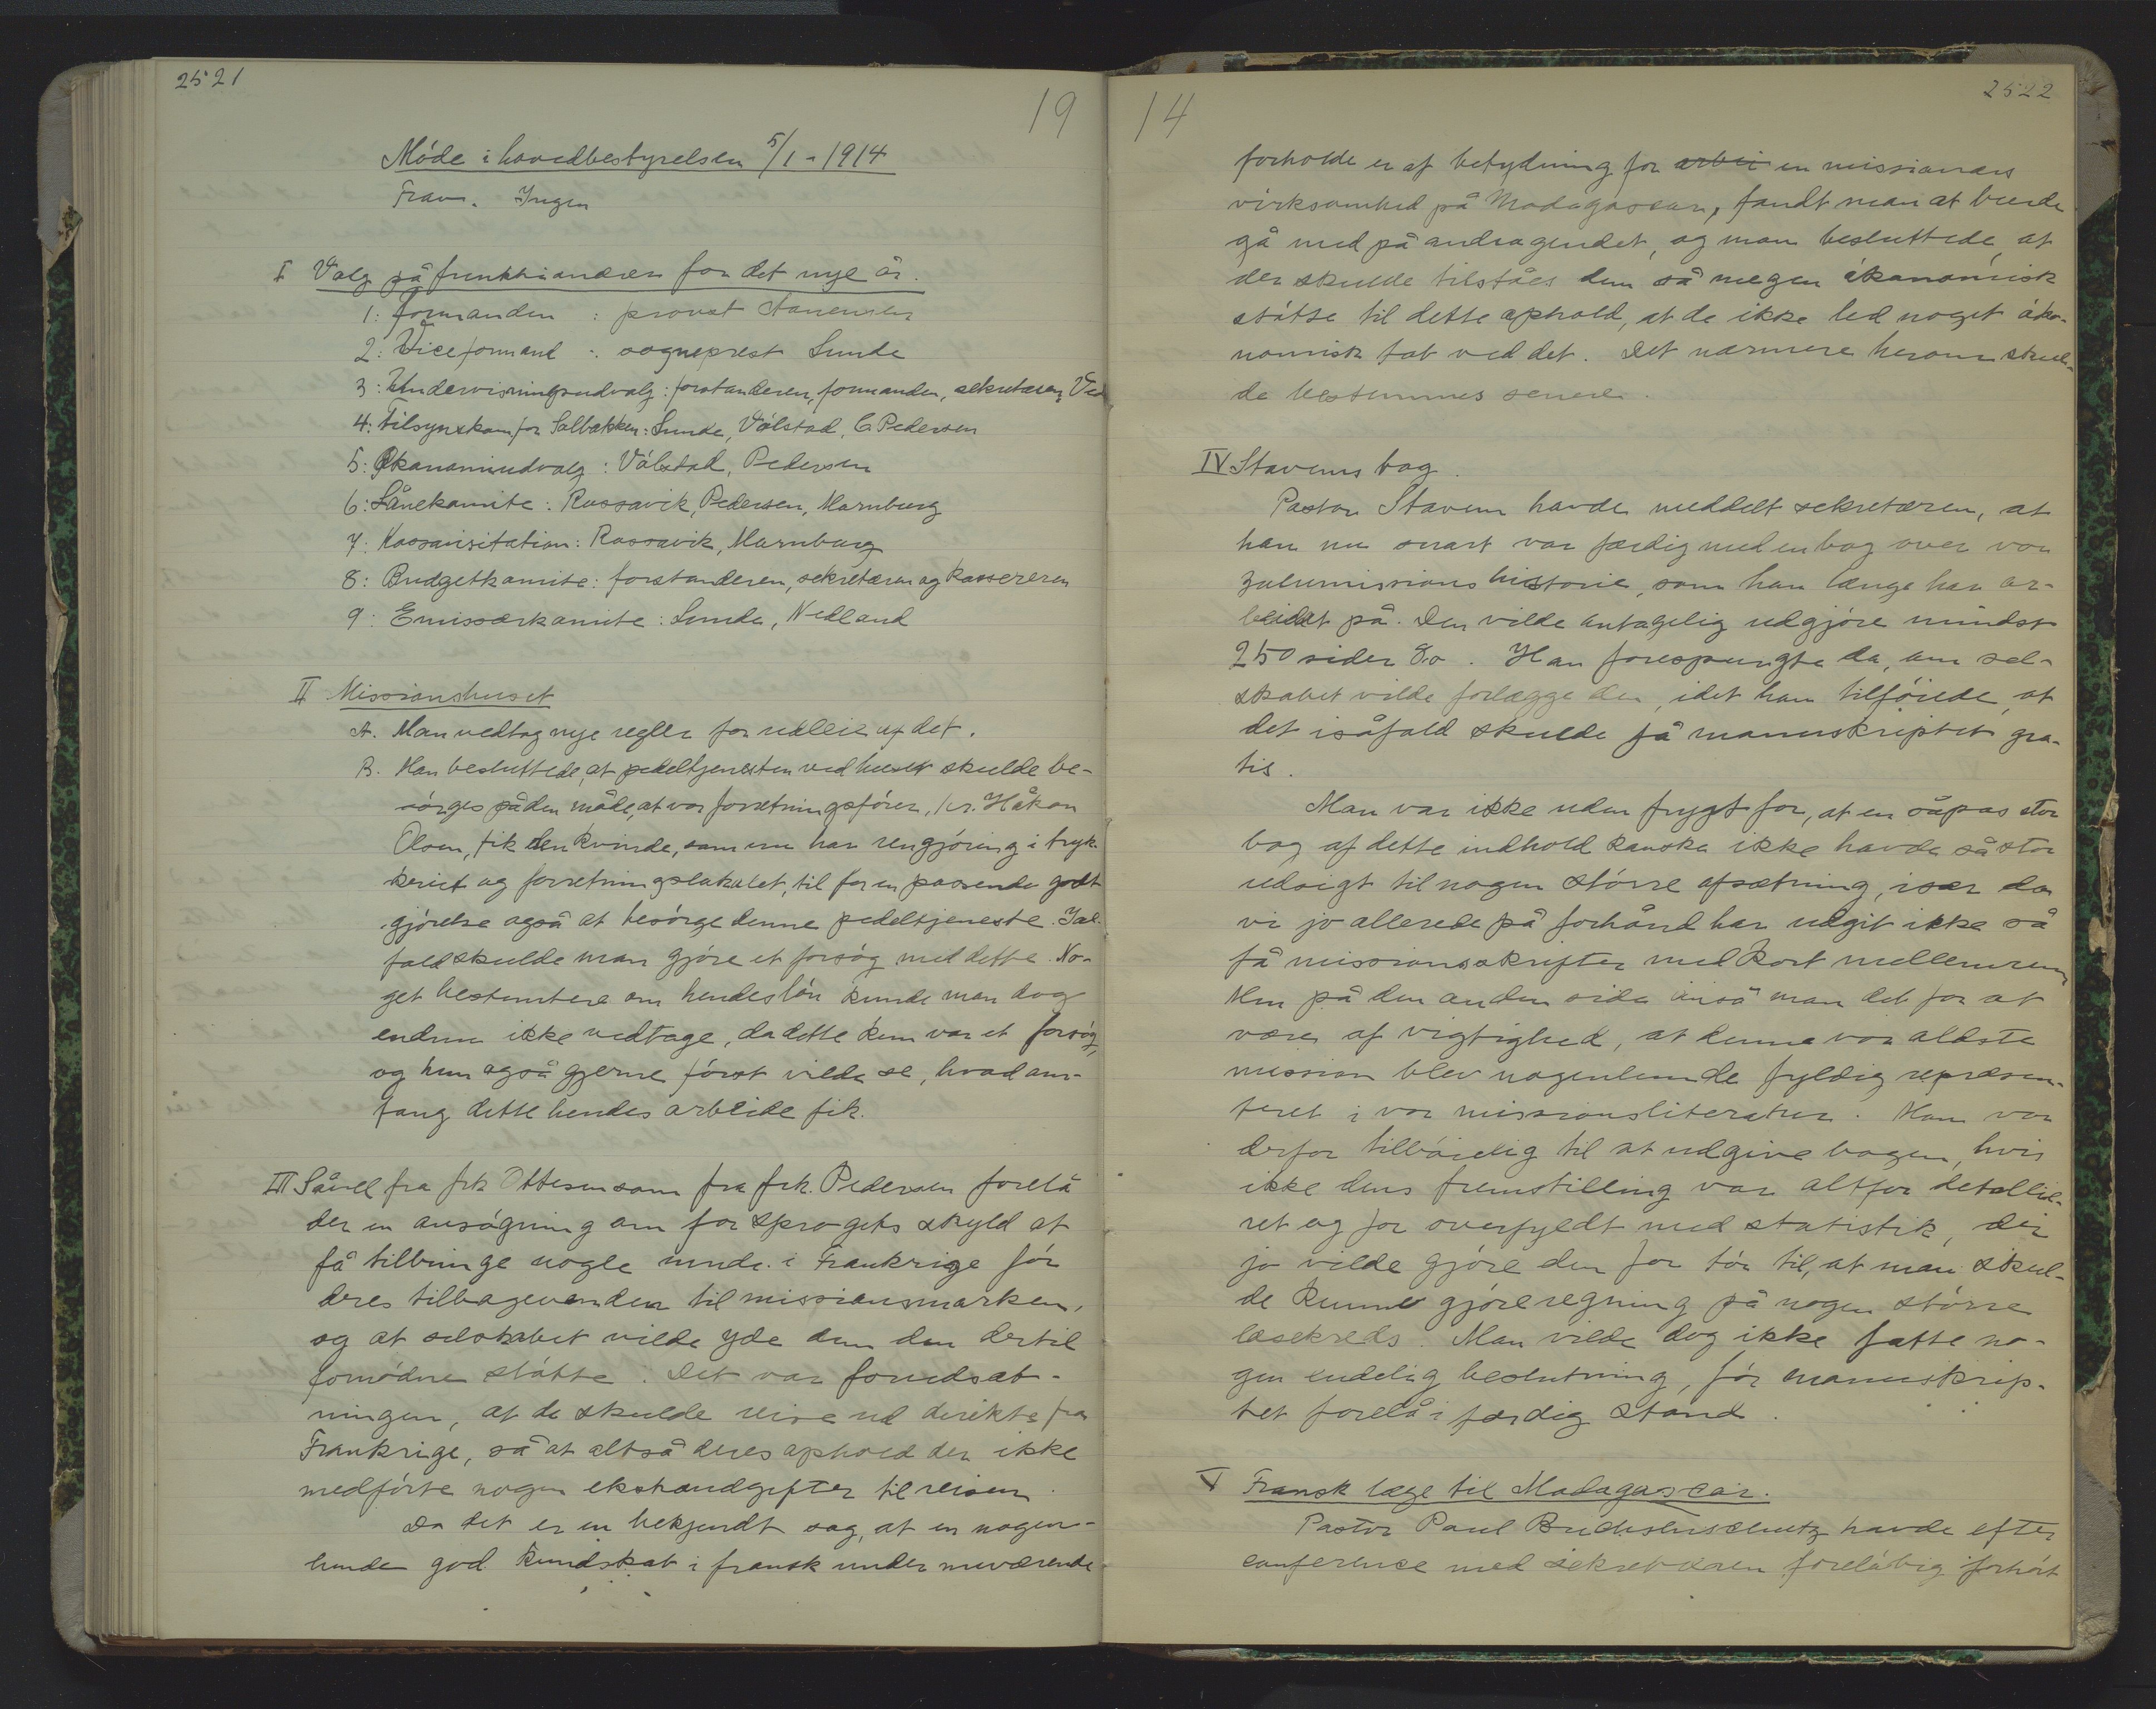 2521
19
Móde i hovedbestyrelsen 5/1 - 1914
Frav. Ingen
I Valg på funktionærer for det nye år.
1: formanden : provst
2: Viceformand : sogneprest Sunde
3: Undervisningsudvalg: forstanderen, formanden, sekretæren, Ved
4: Tilsynskom for Solbakken: Sunde, Vólstad, C Pedersen
5: Økonomiudvalg : Vólstad, Pedersen
6: Lånekomite : Rossavik, Pedersen, Marnburg
7: Kassavisitation: Rossavik, Marnburg
8: Budgetkomite: forstanderen, sekretæren og kassereren
9: Emissærkomite: Sunde, Nedland
II Missionshuset
A. Man vedtog nye regler for udleie af det.
B. Man besluttede, at pedeltjenesten ved huset skulde be-
sórges på den måde, at vor forretningsfórer, hr. Håkon
Olsen, fik den kvinde, som nu har rengjóring i tryk-
keriet og forretningslokalet, til for en passende godt
gjórelse også at besórge denne pedeltjeneste. Ial-
fald skulde man gjóre et forsóg med dette. No-
get bestemtere om hendes lón kunde man dog
endnu ikke vedtage, da dette kun var et forsóg,
og hun også gjerne fórst vilde se, hvad om-
fang dette hendes arbeide fik.
III Såvel fra frk Ottesen som fra frk. Pedersen forelå
der en ansógning om for sprogets skyld at
få tilbringe nogle mndr. i Frankrige fór
deres tilbagevenden til missionsmarken,
og at selskabet vilde yde dem den dertil
fornódne stótte. Det var forudsæt-
ningen, at de skulde reise ud direkte fra
Frankrige, så at altså deres ophold der ikke
medfórte nogen ekstraudgifter til reisen.
Da det er en bekjendt sag, at en nogen-
lunde god kundskab i fransk under nuværende
14
2522
forholde er af betydning for arbei en missionærs
virksomhed på Madagaskar, fandt man at burde
gå med på andragendet, og man besluttede, at
der skulde tilståes dem så megen ókonomisk
stótte til dette ophold, at de ikke led noget óko-
nomisk tab ved det. Det nærmere herom skul-
de bestemmes senere.
IV Stavems bog.
Pastor Stavem havde meddelt sekretæren, at
han nu snart var færdig med en bog over vor
zulumissions historie, som han længe har ar-
beidet på. Den vilde antagelig udgjóre mindst
250 sider 8o. Han forespurgte da, om sel-
skabet vilde forlægge den, idet han tilfóiede, at
det isåfald skulde få manuskriptet gra-
tis.
Man var ikke uden frygt for, at en såpas stor
bog af dette indhold kanske ikke havde så stor
udsigt til nogen stórre afsætning, især da
vi jo allerede på forhånd har udgit ikke så
få missionsskrifter med kort mellemrum,
Men på den anden side anså man det for at
være af vigtighed, at denne vor ældste
mission blev nogenlunde fyldig repræsen-
teret i vor missionsliteratur. Man var
derfor tilbóielig til at udgive bogen, hvis
ikke dens fremstilling var altfor detallie-
ret og for overfyldt med statistik, der
jo vilde gjóre den for tór til, at man skul-
de kunne gjóre regning på nogen stórre
læsekreds. Man vilde dog ikke fatte no-
gen endelig beslutning, fór manuskrip-
tet forelå i færdig stand.
V Fransk læge til Madagascar.
Pastor Paul havde efter
conference med sekretæren forelóbig forhórt